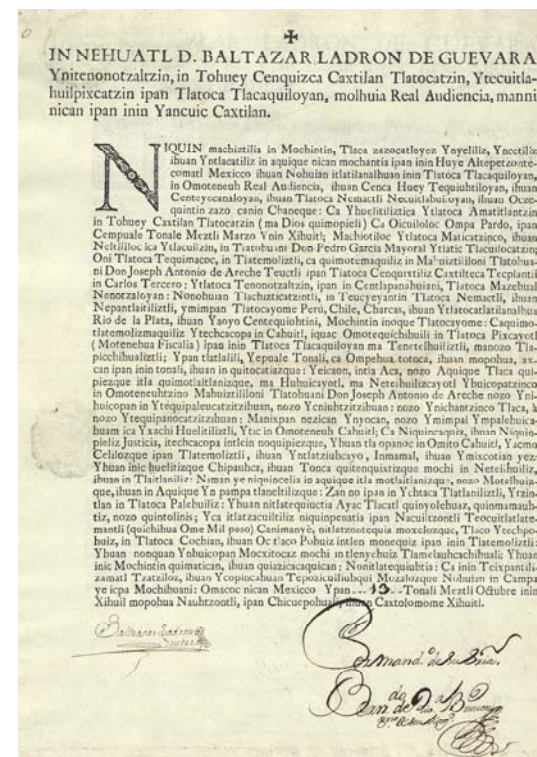 IN NEHUATL D. BALTAZAR LADRON DE GUEVARA
Ynitenonotzaltzin, in Tohuey Cenquizca Caxtilan Tlatocatzin, Ytecuitla-
huilpixcatzin ipan Tlatoca Tlacaquiloyan, molhuia Real Audiencia, manni
nican ipan inin Yancuic Caxtilan.
NIQUIN machiztilia in Mochintin, Tlaca zazocatleyez Ynyeliliz, Ynectiliz
ihuan Yntlacatiliz in aquique nican mochantia ipan inin Huye Altepetzonte-
comatl Mexicco ihuan Nohuian itlatilanalhuan inin Tlatoca Tlacaquiloyan,
in Omoteneuh Real Audiencia, ihuan Cenca Huey Tequiuhtiloyan, ihuan
Centeyecanaloyan, ihuan Tlatoca Nemactli Necuitlahuiloyan, ihuan Occe-
quintin zazo canin Chaneque: Ca Yhuelitiliztica Ytlatoca Amatitlantzin
in Tohuey Caxtilan Tlatocatzin (ma Dios quimopieli) Ca Oicuiloloc Ompa Pardo, ipan
Cempuale Tonale Meztli Marzo Ynin Xihuitl; Machiotiloc Ytlatoca Maticatzinco, ihuan
Neltililoc ica Ytlacuilzin, in Tlatohuani Don Pedro Garcia Mayoral Ytlatic Tlacuilocatzin;
Oni Tlatoca Tequimacoc, in Tlatemoliztli, ca quimotemaquiliz in Mahuiztililoni Tlatohua-
ni Don Joseph Antonio de Areche Teuctli ipan Tlatoca Cenquixtiliz Caxtilteca Tecplantli
in Carlos Tercero; Ytlatoca Tenonotzaltzin, ipan in Centlapanahuiani, Tlatoca Mazehual
Nenotzaloyan: Nonohuian Tlachizticatzintli, in Teucyeyantin Tlatoca Nemactli, ihuan
Nepantlaitiliztli, ymimpan Tlatocayome Perú, Chile, Charcas, ihuan Ytlatocatlatilanalhua
Rio de la Plata, ihuan Yaoyo Centequiuhtini, Mochintin inoque Tlatocayome: Caquimo-
tlatemolizmaquiliz Ytechcacopa in Cahuitl, iquac Omotequichihuili in Tlatoca Pixcayotl
( Motenehua Fiscalia ) ipan inin Tlatoca Tlacaquiloyan ma Tenetelhuiliztli, manozo Tla-
picchihualiztli; Ypan tlatlalili, Yepuale Tonali, ca Ompehua totoca, ihuan mopohua, ax-
can ipan inin tonali, ihuan in quitocatiazque: Yeicaon, intla Aca, nozo Aquique Tlaca qui-
piezque itla quimotlaitlanizque, ma Huhuicayotl, ma Neteihuilizcayotl Ybuicopatzinco
in Omoteneuhtzino Mahuiztililoni Tlatohuani Don Joseph Antonio de Areche nozo Yni-
huicopan in Ytequipaleucatzitzihuan, nozo Yeniuhtzitzihuan: nozo Ynichantzinco Tlaca, à
nozo Ytequipanocatzitzihuan: Manixpan nezican Ynyocan, nozo Ymimpai Ympalehuica-
huan ica Yxachi Huelitiliztli, Ytic in Omoteneuh Cahuitl; Ca Niquincaquiz, ihuan Niquin-
pieliz Justicia, itechcacopa intlein noquipiezque, Yhuan tla opanoc in Omito Cahuitl, Yacmo
Celilozque ipan Tlatemoliztli, ihuan Yntlatziuhcayo, Inmamal, ihuan Ymixcotian yez-
Yhuan inic huelitizque Chipauhca, ihuan Tonca quitenquixtizque mochi in Neteihuiliz,
ihuan in Tlaitlaniliz: Niman ye niquincelia in aquique itla motlaitlanizque, nozo Motelhuiz-
que, ihuan in Aquique Yn pampa tlaneltilizque: Zan no ipan in Ychtaca Tlatlaniliztli, Ytzin-
tlan in Tlatoca Palehuiliz: Yhuan nitlatequiuctia Ayac Tlacatl quinyolehuaz, quinmamauh-
tiz, nozo quintolinis; Yca itlatzacuiltiliz niquinpenatia ipan Nacuitzontli Teocuitlatlate-
mantli (quichihua Ome Mil peso) Canimanyè, nitlatzontequia moxelozque, Tlaco Ytechpo-
huiz, in Tlatoca Cochian, ihuan Oc tlaco Pohuiz intlen monequiz ipan inin Tlatemoliztli:
Yhuan nonquan Ynhuicopan Mocxitocaz mochi intlenyehuiz Tlamelauhcachihuali: Yhuan
inic Mochintin quimatican, ihuan quiazicacaquican; Nonitlatequiuhtia: Ca inin Teixpantili-
zamatl Tzatziloz, ihuan Ycopiocahuan Tepozicuiliuhqui Mozalozque Nohuian in Campa
ye icpa Mochihuani: Omacoc nican Mexicco Ypan 13 Tonali Meztli Octubre inin
Xihuil mopohua Nauhtzontli, ipan Chicuepohuali, ihuan Caxtolomome Xihuitl.
Balthasar Ladron